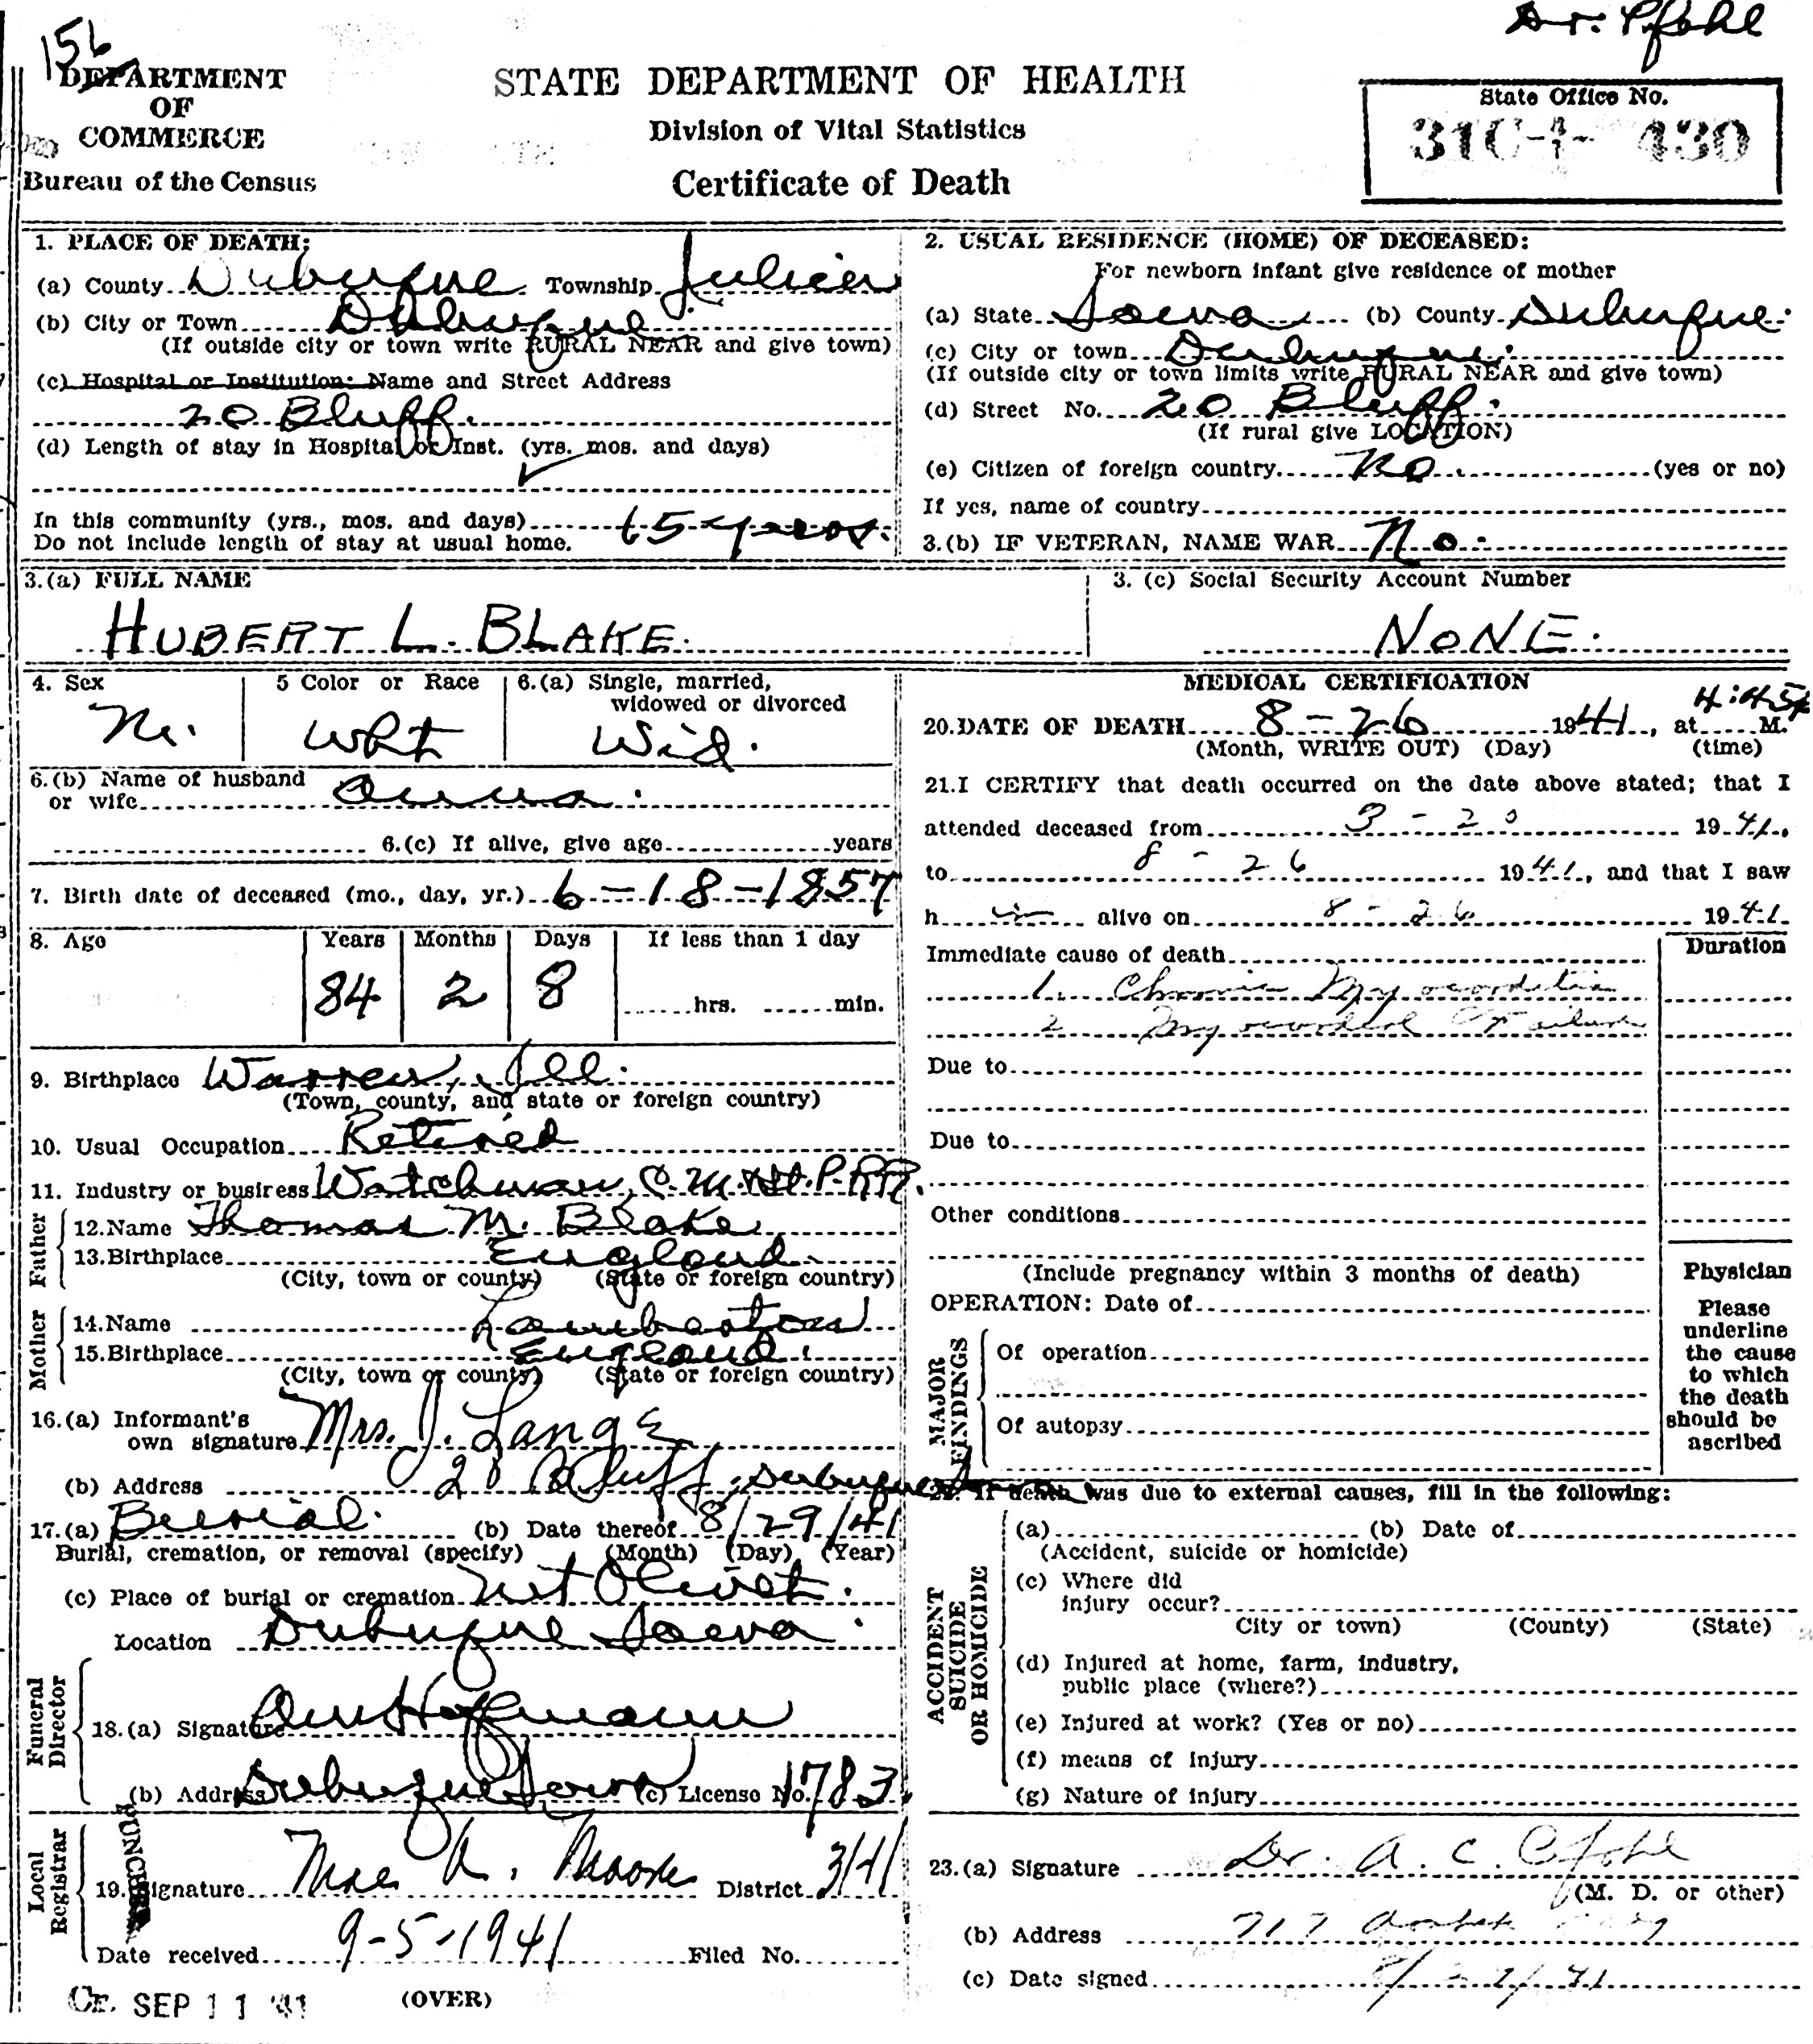 156
Dr. Pfohl
DEPARTMENT
OF
COMMERCE
Bureau of the Census
STATE DEPARTMENT OF HEALTH
Division of Vital Statistics
Certificate of Death
State Office No.
31C-1- 430
1. PLACE OF DEATH:
(a) County Dubuque Township Julien
(b) City or Town Dubuque
(If outside city or town write RURAL NEAR and give town)
(c) Hospital or Institution: Name and Street Address
20 Bluff.
(d) Length of stay in Hospital or Inst. (yrs. mos. and days)
In this community (yrs., mos. and days) 65 years.
Do not include length of stay at usual home.
2. USUAL RESIDENCE (HOME) OF DECEASED:
For newborn infant give residence of mother
(a) State Iowa (b) County Dubuque.
(c) City or town Dubuque.
(If outside city or town limits write RURAL NEAR and give town)
(d) Street No. 20 Bluff.
(If rural give LOCATION)
(e) Citizen of foreign country No. (yes or no)
If yes, name of country
3.(b) IF VETERAN, NAME WAR No.
3.(a) FULL NAME
HUBERT L. BLAKE.
3. (c) Social Security Account Number
NONE.
4. Sex
M.
5 Color or Race
Wht
6.(a) Single, married,
widowed or divorced
Wid.
6.(b) Name of husband
or wife Anna.
6.(c) If alive, give age years
7. Birth date of deceased (mo., day, yr.) 6-18-1857
8. Age Years Months Days If less than 1 day
84 2 8 hrs. min.
9. Birthplace Warren, Ill.
(Town, county, and state or foreign country)
10. Usual Occupation Retired
11. Industry or business Watchman, C.M. & St. P. RR.
Father
12.Name Thomas M. Blake
13.Birthplace England.
(City, town or county) (State or foreign country)
Mother
14.Name Lamberton
15.Birthplace England.
(City, town or county) (State or foreign country)
16.(a) Informant's
own signature Mrs. J. Lange
(b) Address 20 Bluff, Dubuque Iowa
17.(a) Burial. (b) Date thereof 8/29/41
Burial, cremation, or removal (specify) (Month) (Day) (Year)
(c) Place of burial or cremation Mt Olivet.
Location Dubuque Iowa.
Funeral Director
18.(a) Signature Hoffmann
(b) Address Dubuque Iowa (c) License No. 1783
Local Registrar
19. Signature Mrs. Moore District 3141
Date received 9-5-1941 Filed No.
SEP 11 '41
(OVER)
PUNCHED
MEDICAL CERTIFICATION
20.DATE OF DEATH 8-26 1941, at 4:45 M.
(Month, WRITE OUT) (Day) (time)
21.I CERTIFY that death occurred on the date above stated; that I
attended deceased from 3-20 1941,
to 8-26 1941, and that I saw
h im alive on 8-26 1941
Immediate cause of death Duration
1. Chronic Myocarditis
2 Myocardial Failure
Due to
Due to
Other conditions
(Include pregnancy within 3 months of death)
OPERATION: Date of
MAJOR FINDINGS
Of operation
Of autopsy
Physician
Please
underline
the cause
to which
the death
should be
ascribed
22. If death was due to external causes, fill in the following:
ACCIDENT SUICIDE OR HOMICIDE
(a) (b) Date of
(Accident, suicide or homicide)
(c) Where did
injury occur?
City or town) (County) (State)
(d) Injured at home, farm, industry,
public place (where?)
(e) Injured at work? (Yes or no)
(f) means of injury
(g) Nature of injury
23.(a) Signature Dr. A. C. Pfohl
(M. D. or other)
(b) Address 717
(c) Date signed 8/27/41